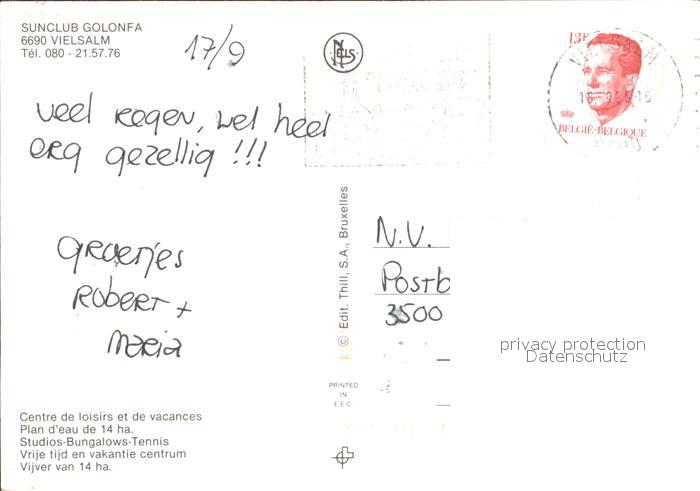 SUNCLUB GOLONFA
6690 VIELSALM
Tél. 080 - 21.57.76
17/9
NELS
13F
BELGIË-BELGIQUE
veel regen, wel heel
erg gezellig !!!
groetjes
Robert +
Maria
© Edit. Thill, S.A., Bruxelles
N.V.
Postb
3500
privacy protection
Datenschutz
PRINTED
IN
E.E.C.
Centre de loisirs et de vacances
Plan d'eau de 14 ha.
Studios-Bungalows-Tennis
Vrije tijd en vakantie centrum
Vijver van 14 ha.